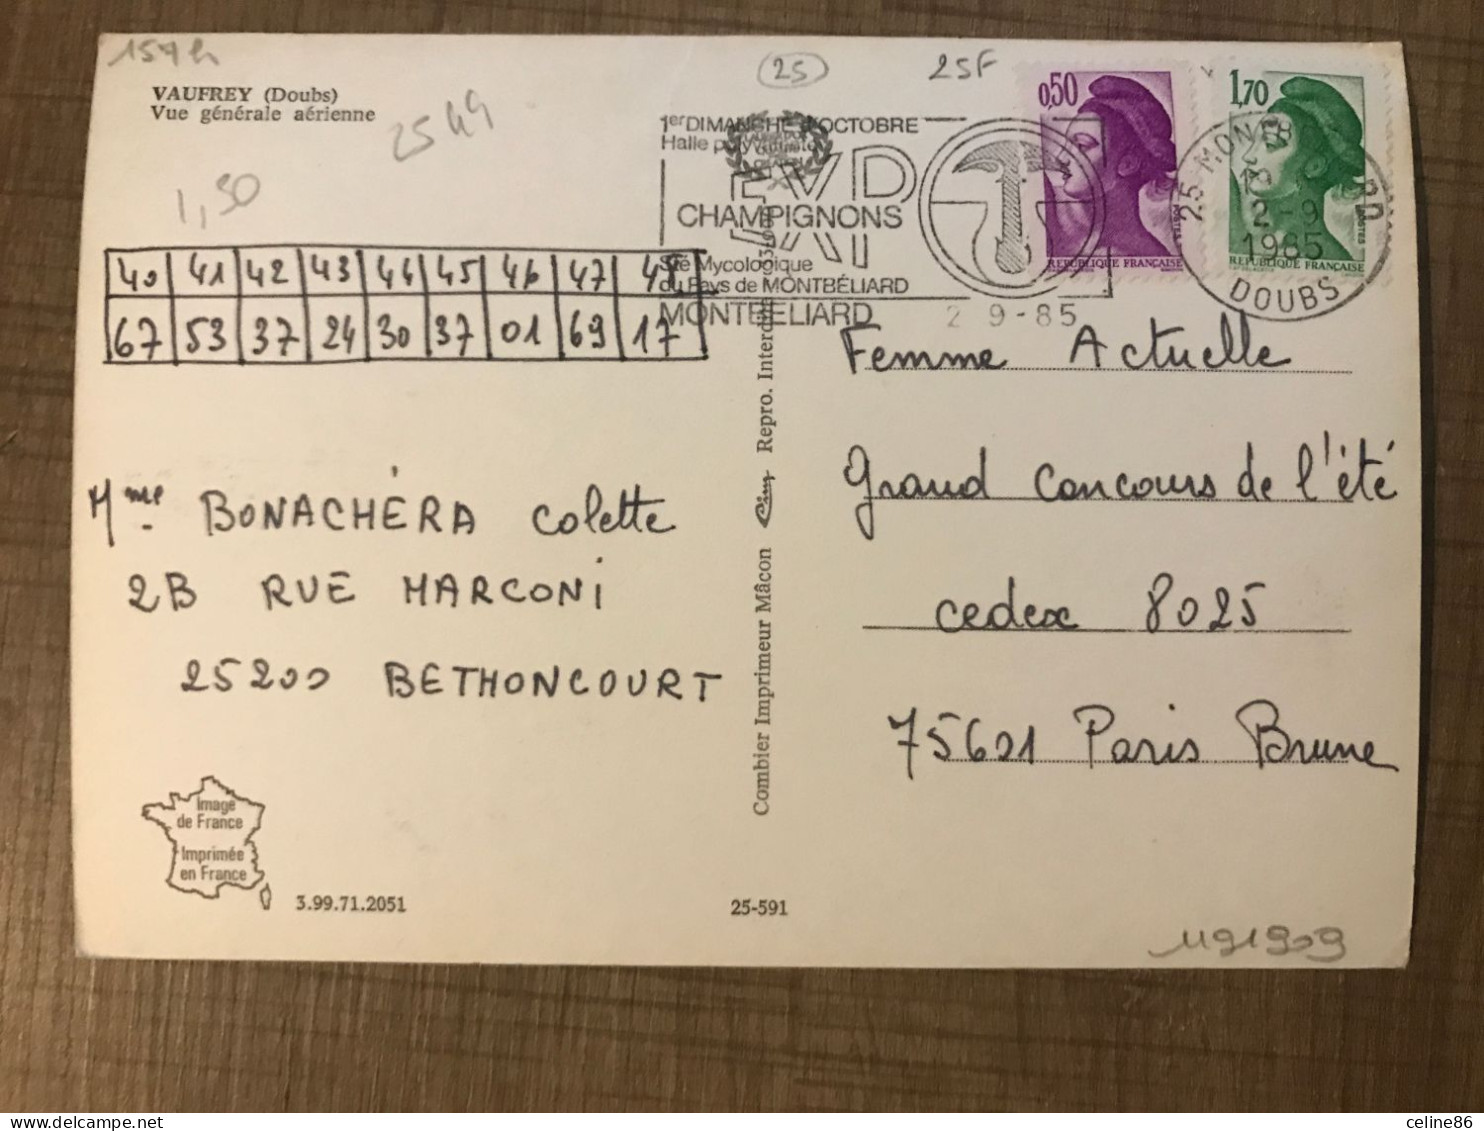 157h
VAUFREY (Doubs)
Vue générale aérienne
25 49
1,50
25
25F
1er DIMANCHE D'OCTOBRE
Halle polyvalente
EXPO
CHAMPIGNONS
Sté Mycologique
du Pays de MONTBÉLIARD
MONTBELIARD
2 9 - 85
0,50
REPUBLIQUE FRANÇAISE
1,70
REPUBLIQUE FRANÇAISE
25 MONTBELIARD
2 - 9
1985
DOUBS
40 41 42 43 44 45 46 47 48
67 53 37 24 30 37 01 69 17
Mme BONACHÉRA Colette
2B RUE MARCONI
25200 BETHONCOURT
Femme Actuelle
Grand Concours de l'été
cedex 8025
75601 Paris Brune
Combier Imprimeur Mâcon Cim Repro. Interdite
Image
de France
Imprimée
en France
3.99.71.2051
25-591
1191909
celine86